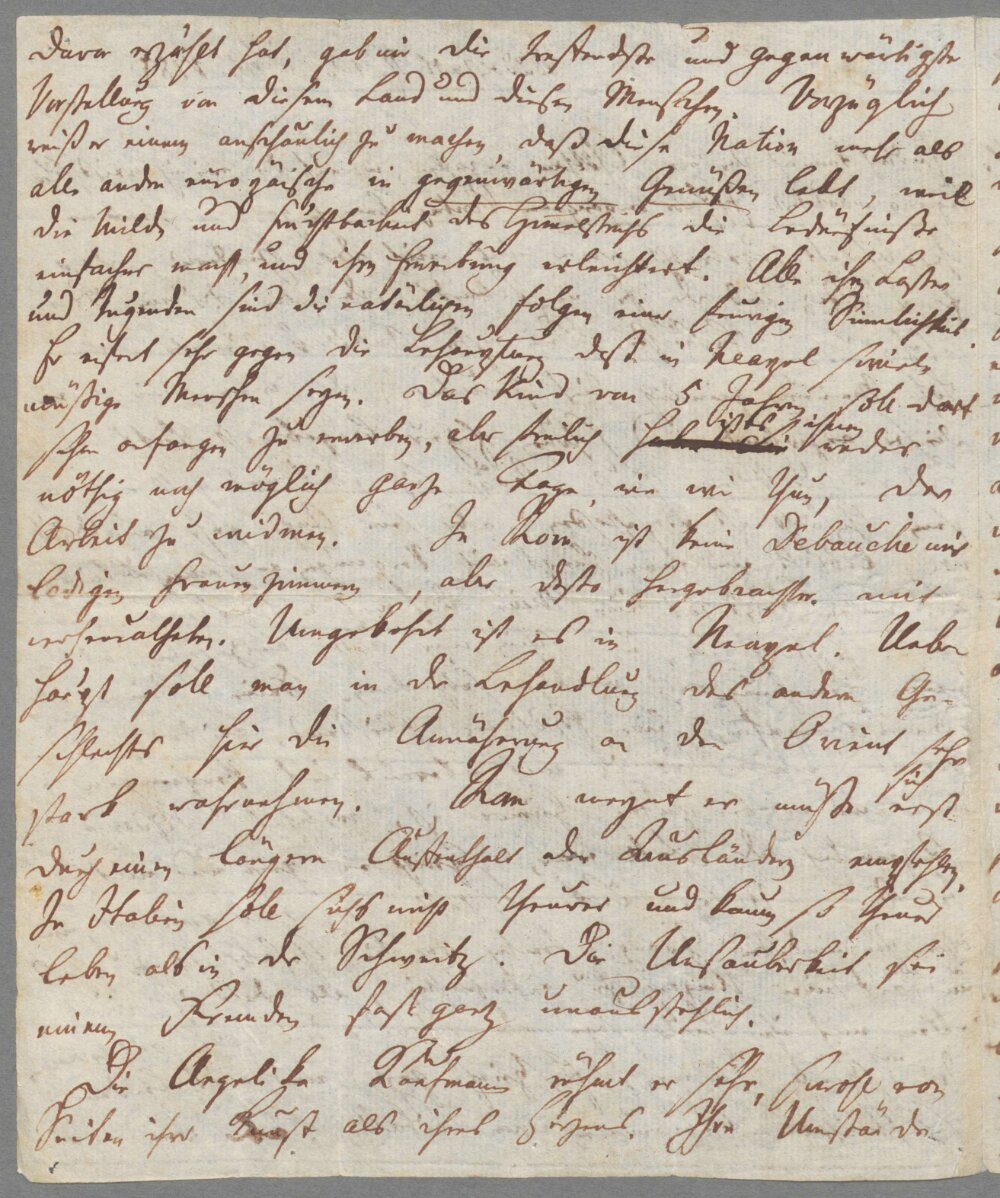 davon erzählt hat, gab mir die treffendste und gegenwärtigste
Vorstellung von diesem Land und diesen Menschen. Vorzüglich
weiß er einem anschaulich zu machen, daß diese Nation mehr als
alle andre europäische in gegenwärtigen Genüßen lebt, weil
die Milde und Fruchtbarkeit des Himelstrichs die Bedürfniße
einfacher macht, und ihre Erwerbung erleichtert. Alle ihre Laster
und Tugenden sind die natürlichen Folgen einer feurigen Sinnlichkeit.
Er eifert sehr gegen die Behauptung daß in Neapel soviele
müßige Menschen seyen. Das Kind von 5 Jahren soll dort
schon anfangen zu erwerben, aber freilich ist es ihnen weder
nöthig noch möglich ganze Tage, wie wir thun, der
Arbeit zu widmen. In Rom ist keine Debauche mit
ledigen Frauenzimmern, aber desto hergebrachter mit
verheuratheten. Umgekehrt ist es in Neapel. Ueber
haupt soll man in der Behandlung des andern Ge-
schlechts hier die Annäherung an den Orient sehr
stark wahrnehmen. Rom meynt er müße sich erst
durch einen längern Aufenthalt den Ausländern empfehlen.
In Italien soll sichs nicht theurer und kaum so theuer
leben als in der Schweitz. Die Unsauberkeit sei
einem Fremden fast ganz unausstehlich.
Die Angelika Kaufmann rühmt er sehr, sowohl von
Seiten ihrer Kunst als ihres Herzens. Ihre Umstände